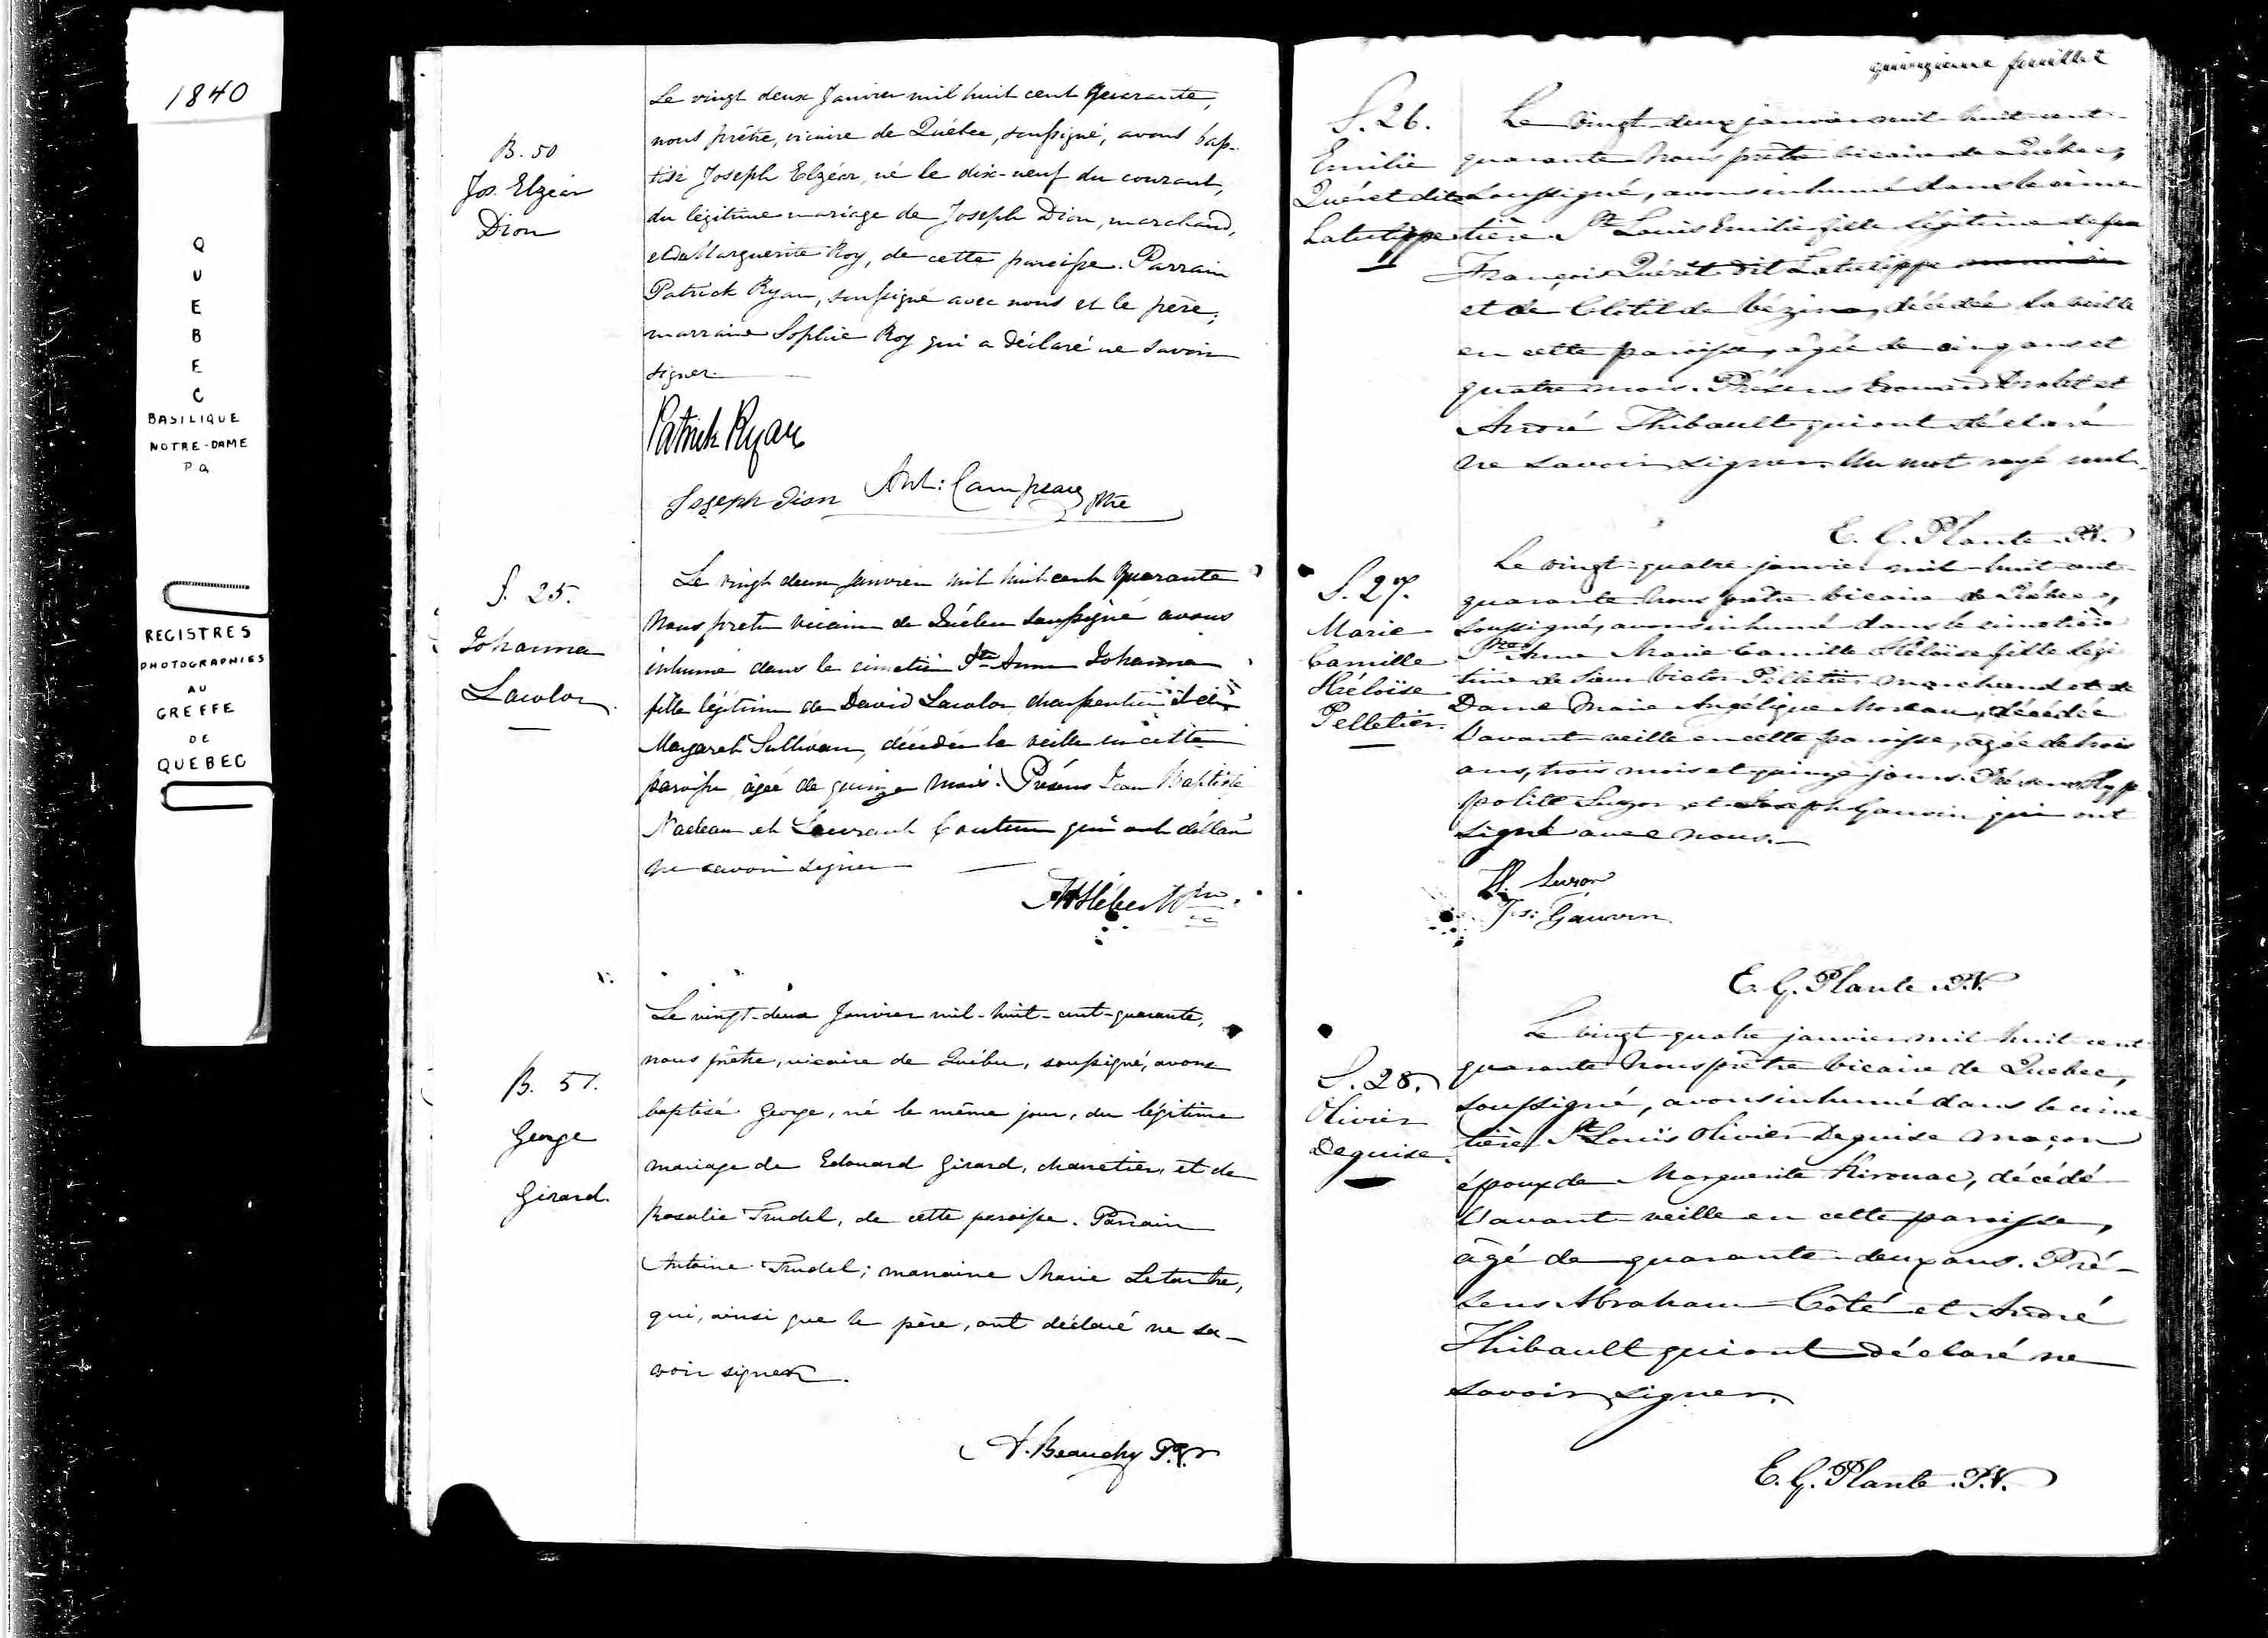 1840
QUEBEC
BASILIQUE
NOTRE-DAME
P.Q.
REGISTRES
PHOTOGRAPHIES
AU
GREFFE
DE
QUEBEC
B. 50
Jos. Elzéar
Dion
Le vingt deux Janvier mil huit cent Quarante,
nous prêtre, vicaire de Québec, soussigné, avons bap-
tisé Joseph Elzéar, né le dix-neuf du courant,
du légitime mariage de Joseph Dion, marchand,
et de Marguerite Roy, de cette paroisse. Parrain
Patrick Ryan, soussigné avec nous et le père;
marraine Sophie Roy qui a déclaré ne savoir
signer.
Patrick Ryan
Joseph Dion Ant: Campeau ptre
S. 25.
Johanna
Lacolor
Le vingt deux Janvier mil huit cent Quarante
Nous pretre vicaire de Québec soussigné avons
inhumé dans le cimetière Ste Anne Johanna
fille légitime de David Lacolor charpentier et de
Margaret Sullivan, décédée la veille en cette
paroisse agée de quinze mois. Présens Jean Baptiste
Nadeau et Laurent Couture qui ont déclaré
ne savoir signer
Hébert ptre
B. 51.
George
Girard.
Le vingt-deux Janvier mil-huit-cent-quarante,
nous prêtre, vicaire de Québec, soussigné, avons
baptisé George, né le même jour, du légitime
mariage de Edouard Girard, charretier, et de
Rosalie Trudel, de cette paroisse. Parrain
Antoine Trudel; marraine Marie Letartre,
qui, ainsi que le père, ont déclaré ne sa-
voir signer.
A. Beaudry P.V
quinzieme feuillet
S. 26.
Emilie
Quéret dite
Latulippe
Le vingt-deux janvier mil huit cent
quarante Nous prêtre vicaire de Québec,
soussigné, avons inhumé dans le cime
tière St Louis Emilie fille légitime de feu
François Quérêt dit Latulippe
et de Clotilde Vézina, décédée la veille
en cette paroisse, agée de cinq ans et
quatre mois. Présens Edouard Drolet et
André Thibault qui ont déclaré
ne savoir signer. Un mot rayé nul.
E. G. Plante P.V.
S. 27.
Marie
Camille
Héloïse
Pelletier.
Le vingt-quatre janvier mil-huit cent
quarante Nous prêtre vicaire de Québec,
soussigné, avons inhumé dans le cimetière
Ste Anne Marie Camille Héloïse fille légi
time de Sieur Victor Pelletier marchand et de
Dame Marie Angélique Moreau, décédée
l'avant veille en cette paroisse, agée de trois
ans, trois mois et quinze jours. Présens Hyp
polite Suzor et Joseph Gauvin qui ont
signé avec nous.
H. Suzor
Js: Gauvin
E. G. Plante P.V.
S. 28.
Olivier
Deguise.
Le vingt-quatre janvier mil huit cent
quarante Nous prêtre vicaire de Quebec,
soussigné, avons inhumé dans le cime
tière St Louis Olivier Deguise maçon
époux de Marguerite Kirouac, décédé
l'avant veille en cette paroisse,
âgé de quarante-deux ans. Pré-
sens Abraham Côté et André
Thibault qui ont déclaré ne
savoir signer.
E. G. Plante P.V.